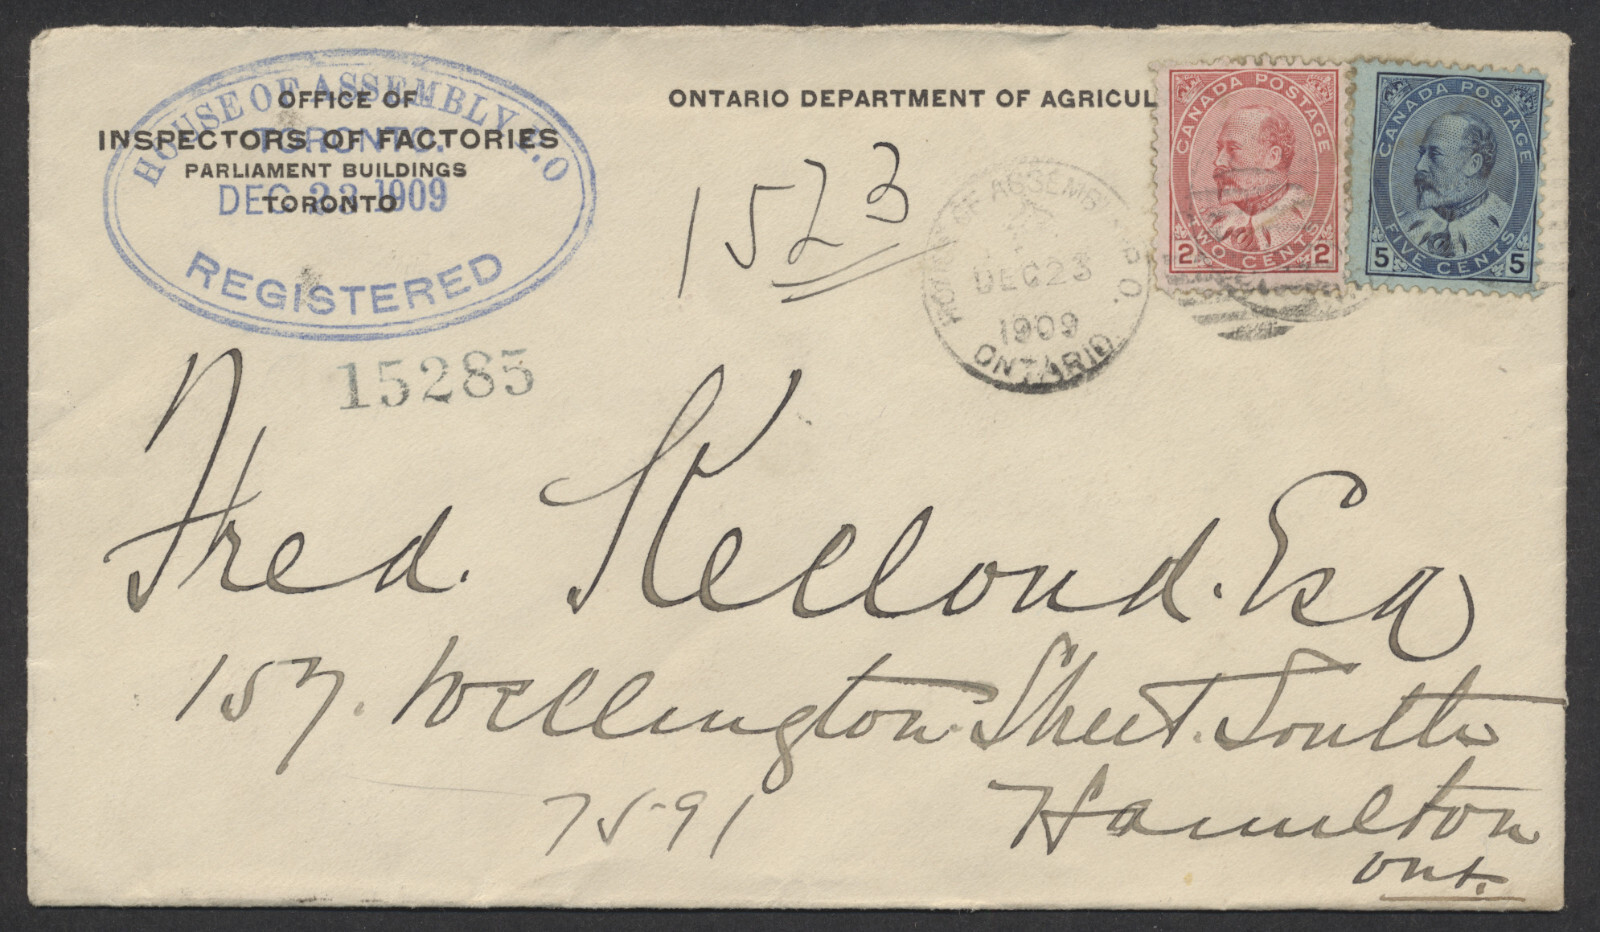 HOUSE OF ASSEMBLY P.O
TORONTO.
DEC 23 1909
REGISTERED
OFFICE OF
INSPECTORS OF FACTORIES
PARLIAMENT BUILDINGS
TORONTO
ONTARIO DEPARTMENT OF AGRICUL
CANADA POSTAGE
2 TWO CENTS 2
CANADA POSTAGE
5 FIVE CENTS 5
1523
HOUSE OF ASSEMBLY P.O.
DEC 23
1909
ONTARIO
15285
Fred. Kelloud. Esq
157. Wellington Street. South
7591
Hamilton
Ont.